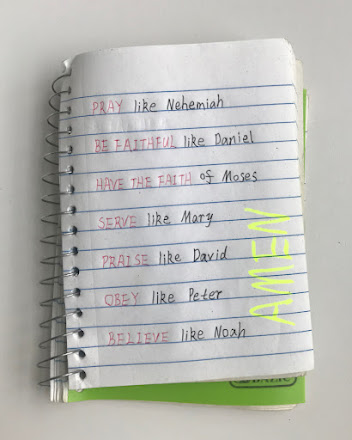 PRAY like Nehemiah
BE FAITHFUL like Daniel
HAVE THE FAITH of Moses
SERVE like Mary
PRAISE like David
OBEY like Peter
BELIEVE like Noah
AMEN